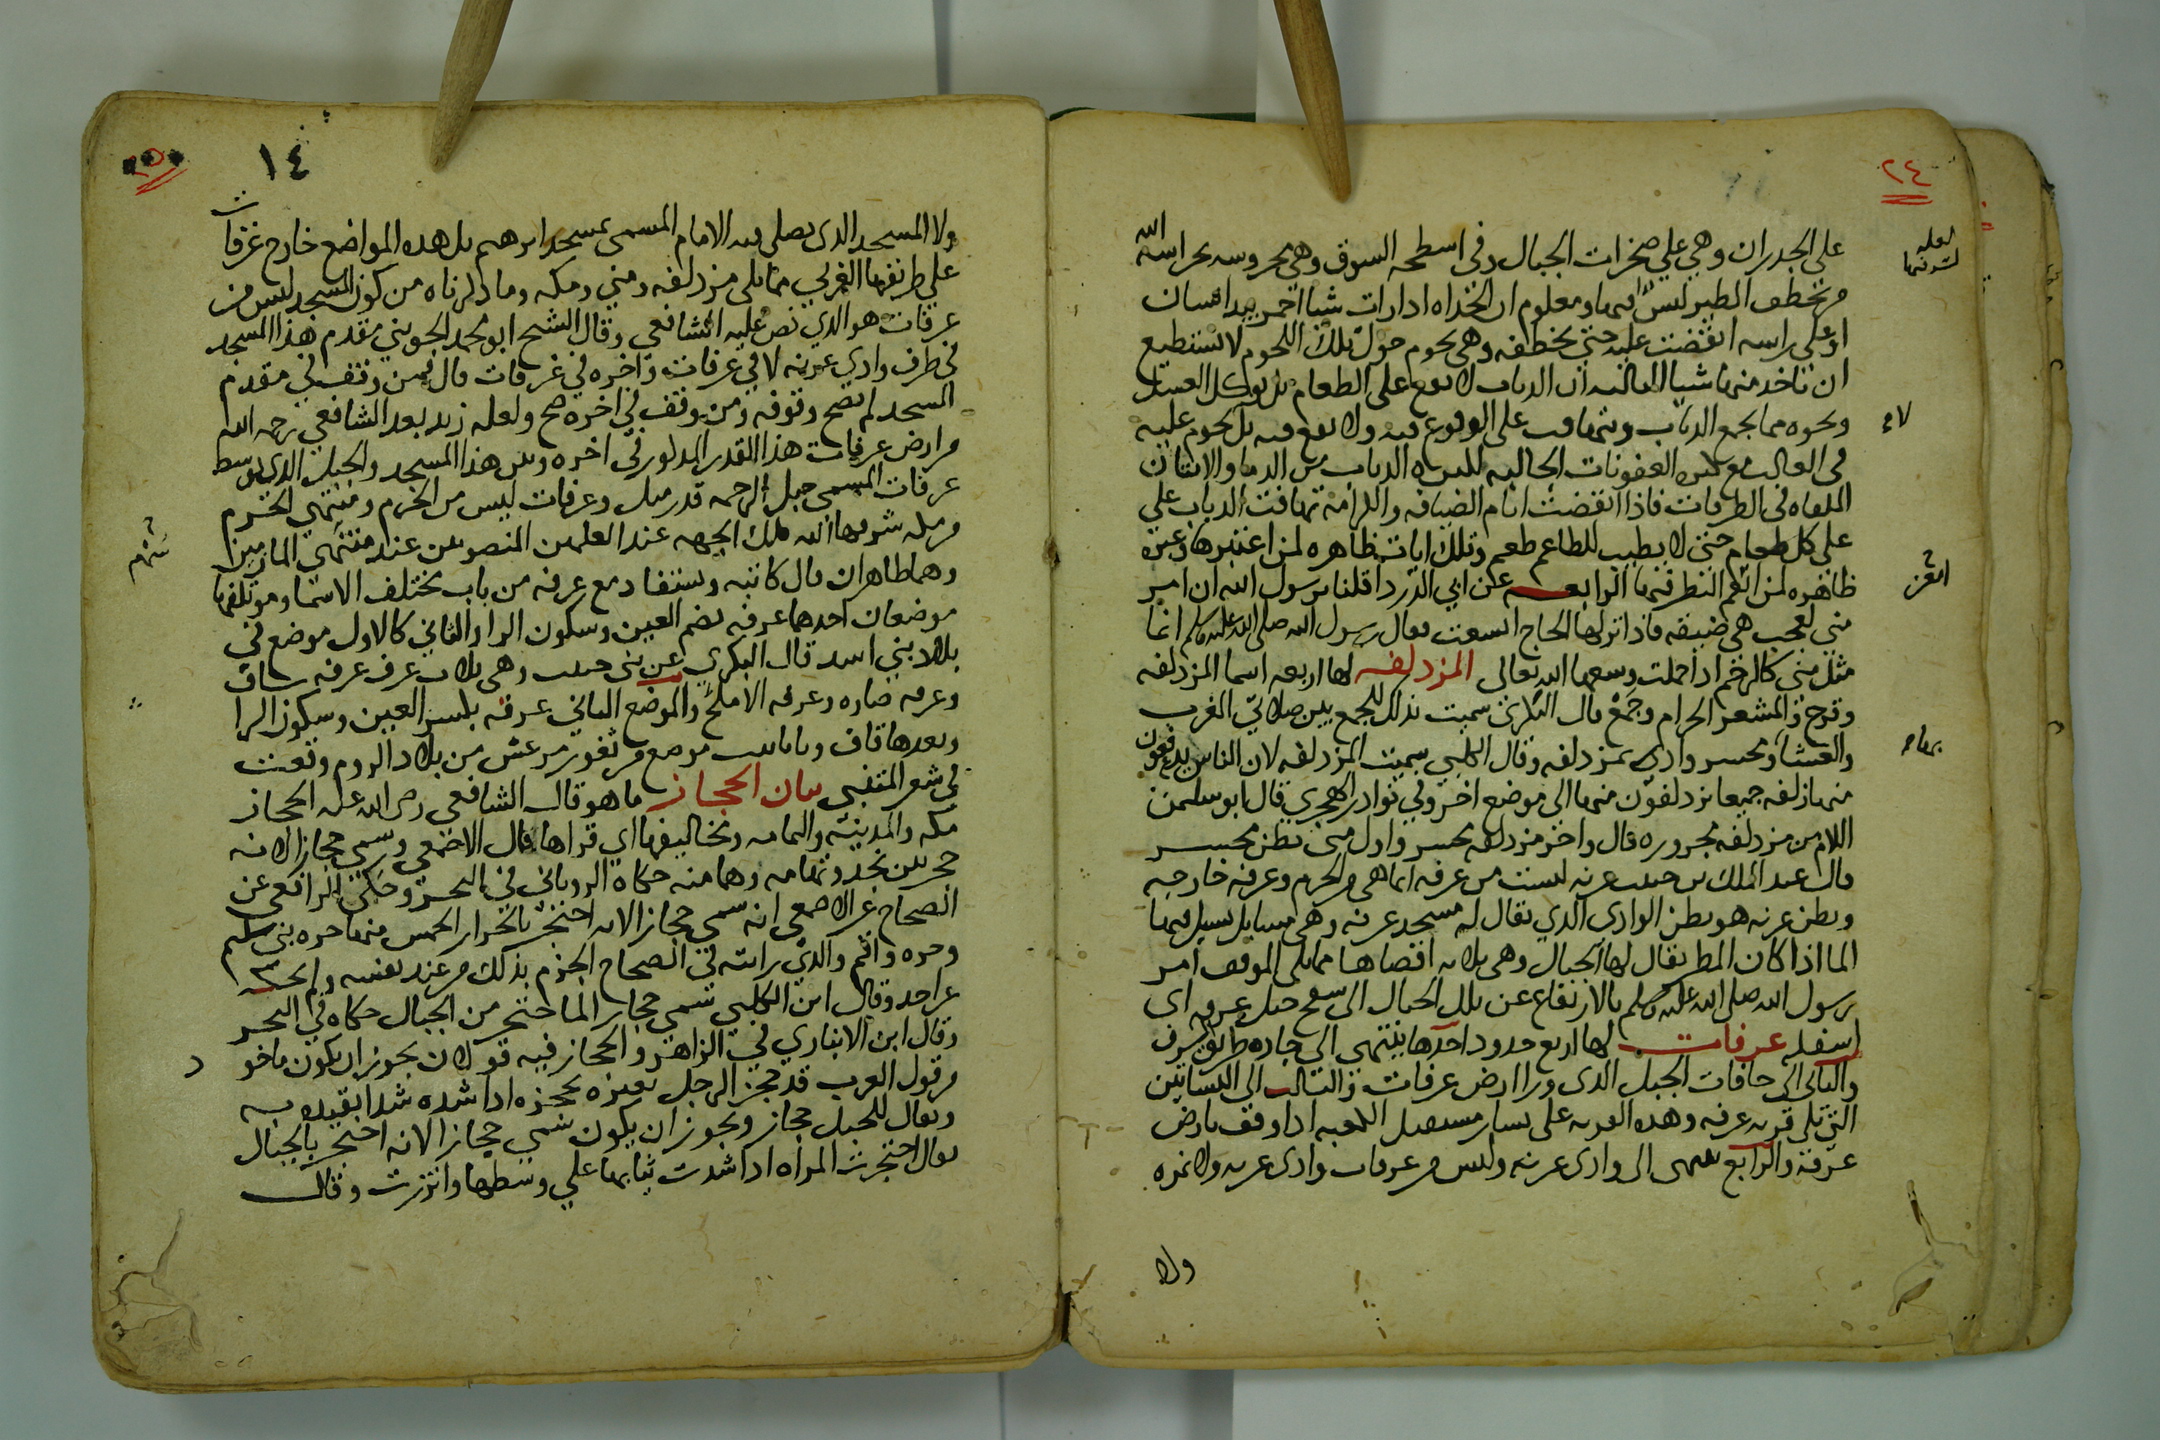 ٢٤
على الجدران وهي على صخرات الجبال وفي اسطحة السوق وهي محروسه بحراسة الله
من تخطف الطير ليس ومعلوم ان الحداه اذا رات شيا احمر بيد انسان
او على راسه انقضت عليه حتى تخطفه وهي تحوم حول تلك اللحوم لا تستطيع
ان تاخذ منها شيا الثالثه ان الذباب لا يقع على الطعام بل يوكل العسل
ونحوه مما يجمع الذباب ويتهافت على الوقوع فيه ولا يقع فيه بل يحوم عليه
في الغالب مع كثره العفونات الجالبه لكثره الذباب من الدما والانتان
الملقاه في الطرقات فاذا انقضت ايام الضيافه والكرامة تهافت الذباب على
على كل طعام حتى لا يطيب للطاعم طعم وتلك ايات ظاهره لمن اعتبرها وعبره
ظاهره لمن انعم النظر فيها الرابعه عن ابي الدردا قلنا يرسول الله ان امر
منى لعجب هي ضيقه فاذا نزلها الحاج اتسعت فقال رسول الله صلى الله عليه وسلم انما
مثل منى كالرحم اذا حملت وسعها الله تعالى المزدلفه لها اربعه اسما المزدلفه
وقزح والمشعر الحرام وجمع قال البكري سميت بذلك للجمع بين صلاتي المغرب
والعشا ومحسر وادي بمزدلفه وقال الكلبي سميت المزدلفه لان الناس يدفعون
منها زلفه جميعا يزدلفون منها الى موضع اخر وفي نوادر الهجري قال ابو سليمن
اللام من مزدلفه مجروره قال واخر مزدلفه محسر واول منى بطن محسر
قال عبد الملك بن حبيب عرنه ليست من عرفه انما هي من الحرم وعرفه خارجه
وبطن عرنه هو بطن الوادي الذي يقال له مسجد عرنه وهي مسايل يسيل فيها
الما اذا كان المطر يقال لها الجبال وهي ثلاثه اقصاها مما يلي الموقف امر
رسول الله صلى الله عليه وسلم بالارتفاع عن تلك الجبال الى سفح جبل عرفه اى
اسفله عرفات لها اربع حدود احدها ينتهي الى جاده طريق
والثاني الى حافات الجبل الذي ورا ارض عرفات والثالث الى البساتين
التي تلي قريه عرفه وهذه القريه على يسار مستقبل الكعبه اذا وقف بارض
عرفة والرابع ينتهي الى وادي عرنه وليس من عرفات وادي عرنه ولا نمره
ولا
١٤
ولا المسجد الذي يصلي فيه الامام المسمى بمسجد ابرهيم بل هذه المواضع خارج عرفات
على طريقها الغربي مما يلي مزدلفه ومنى ومكه وما ذكرناه من كون المسجد ليس من
عرفات هو الذي نص عليه الشافعي وقال الشيخ ابو محمد الجويني مقدم هذا المسجد
في طرف وادي عرنه لا في عرفات واخره في عرفات قال فمن وقف في مقدم
المسجد لم يصح وقوفه ومن وقف في اخره صح ولعله زيد بعد الشافعي رحمه الله
من ارض عرفات هذا القدر المذكور في اخره وبين هذا المسجد والجبل الذي بوسط
عرفات المسمى جبل الرحمه قدر ميل وعرفات ليس من الحرم ومنتهي الحرم
من مكه شرفها الله تلك الجهه عند العلمين المنصوبين عند منتهى المازمين
وهما ظاهران قال كاتبه ويستفاد مع عرفه من باب مختلف الاسما وموتلفها
موضعان احدهما عرفه بضم العين وسكون الرا والثاني كالاول موضع في
بلاد بني اسد قال البكري عن بني حبيب وهي ثلاث عرف عرفه ساق
وعرفه صاره وعرفه الاملح والموضع الثاني عرقه بكسر العين وسكون الرا
وبعدها قاف موضع من ثغور مرعش من بلاد الروم وقعت
في شعر المتنبي بيان الحجاز ما هو قال الشافعي رضي الله عنه الحجاز
مكه والمدينه واليمامه ومخاليفها اي قراها قال الاصمعي وسمي حجازا لانه
حجز بين نجد وتهامه وهما منه حكاه الروياني في البحر وحكى الرافعي عن
الصحاح عن الاصمعي انه سمي حجازا لانه احتجز بالحرار الخمس منها حره بني سليم
وحره واقم والذي رايته في الصحاح الجزم بذلك من عند نفسه ولم يحكه
عن احد وقال ابن الكلبي سمي حجازا لما احتجز من الجبال حكاه في البحر
وقال ابن الانباري في الزاهر والحجاز فيه قولان يجوز ان يكون ماخو
من قول العرب قد حجز الرجل بعيره يحجزه اذا شده شدا بقيده به
ويقال للحبل حجاز ويجوز ان يكون سمي حجازا لانه احتجز بالجبال
يقال احتجزت المراه اذا شدت ثيابها على وسطها واتزرت وقال